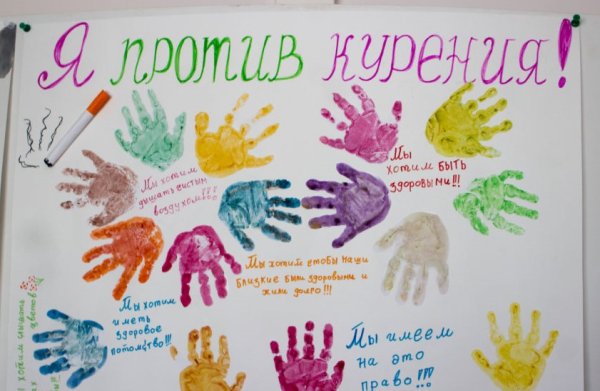 Я ПРОТИВ КУРЕНИЯ!
Мы хотим
дышать чистым
воздухом!!!
Мы
хотим БЫТЬ
здоровыми!!!
Мы хотим чтобы наши
близкие были здоровыми и
жили долго!!!
Мы хотим
иметь
здоровое
потомство!!!
хотим слышать
цветов
Мы имеем
на это
право!!!